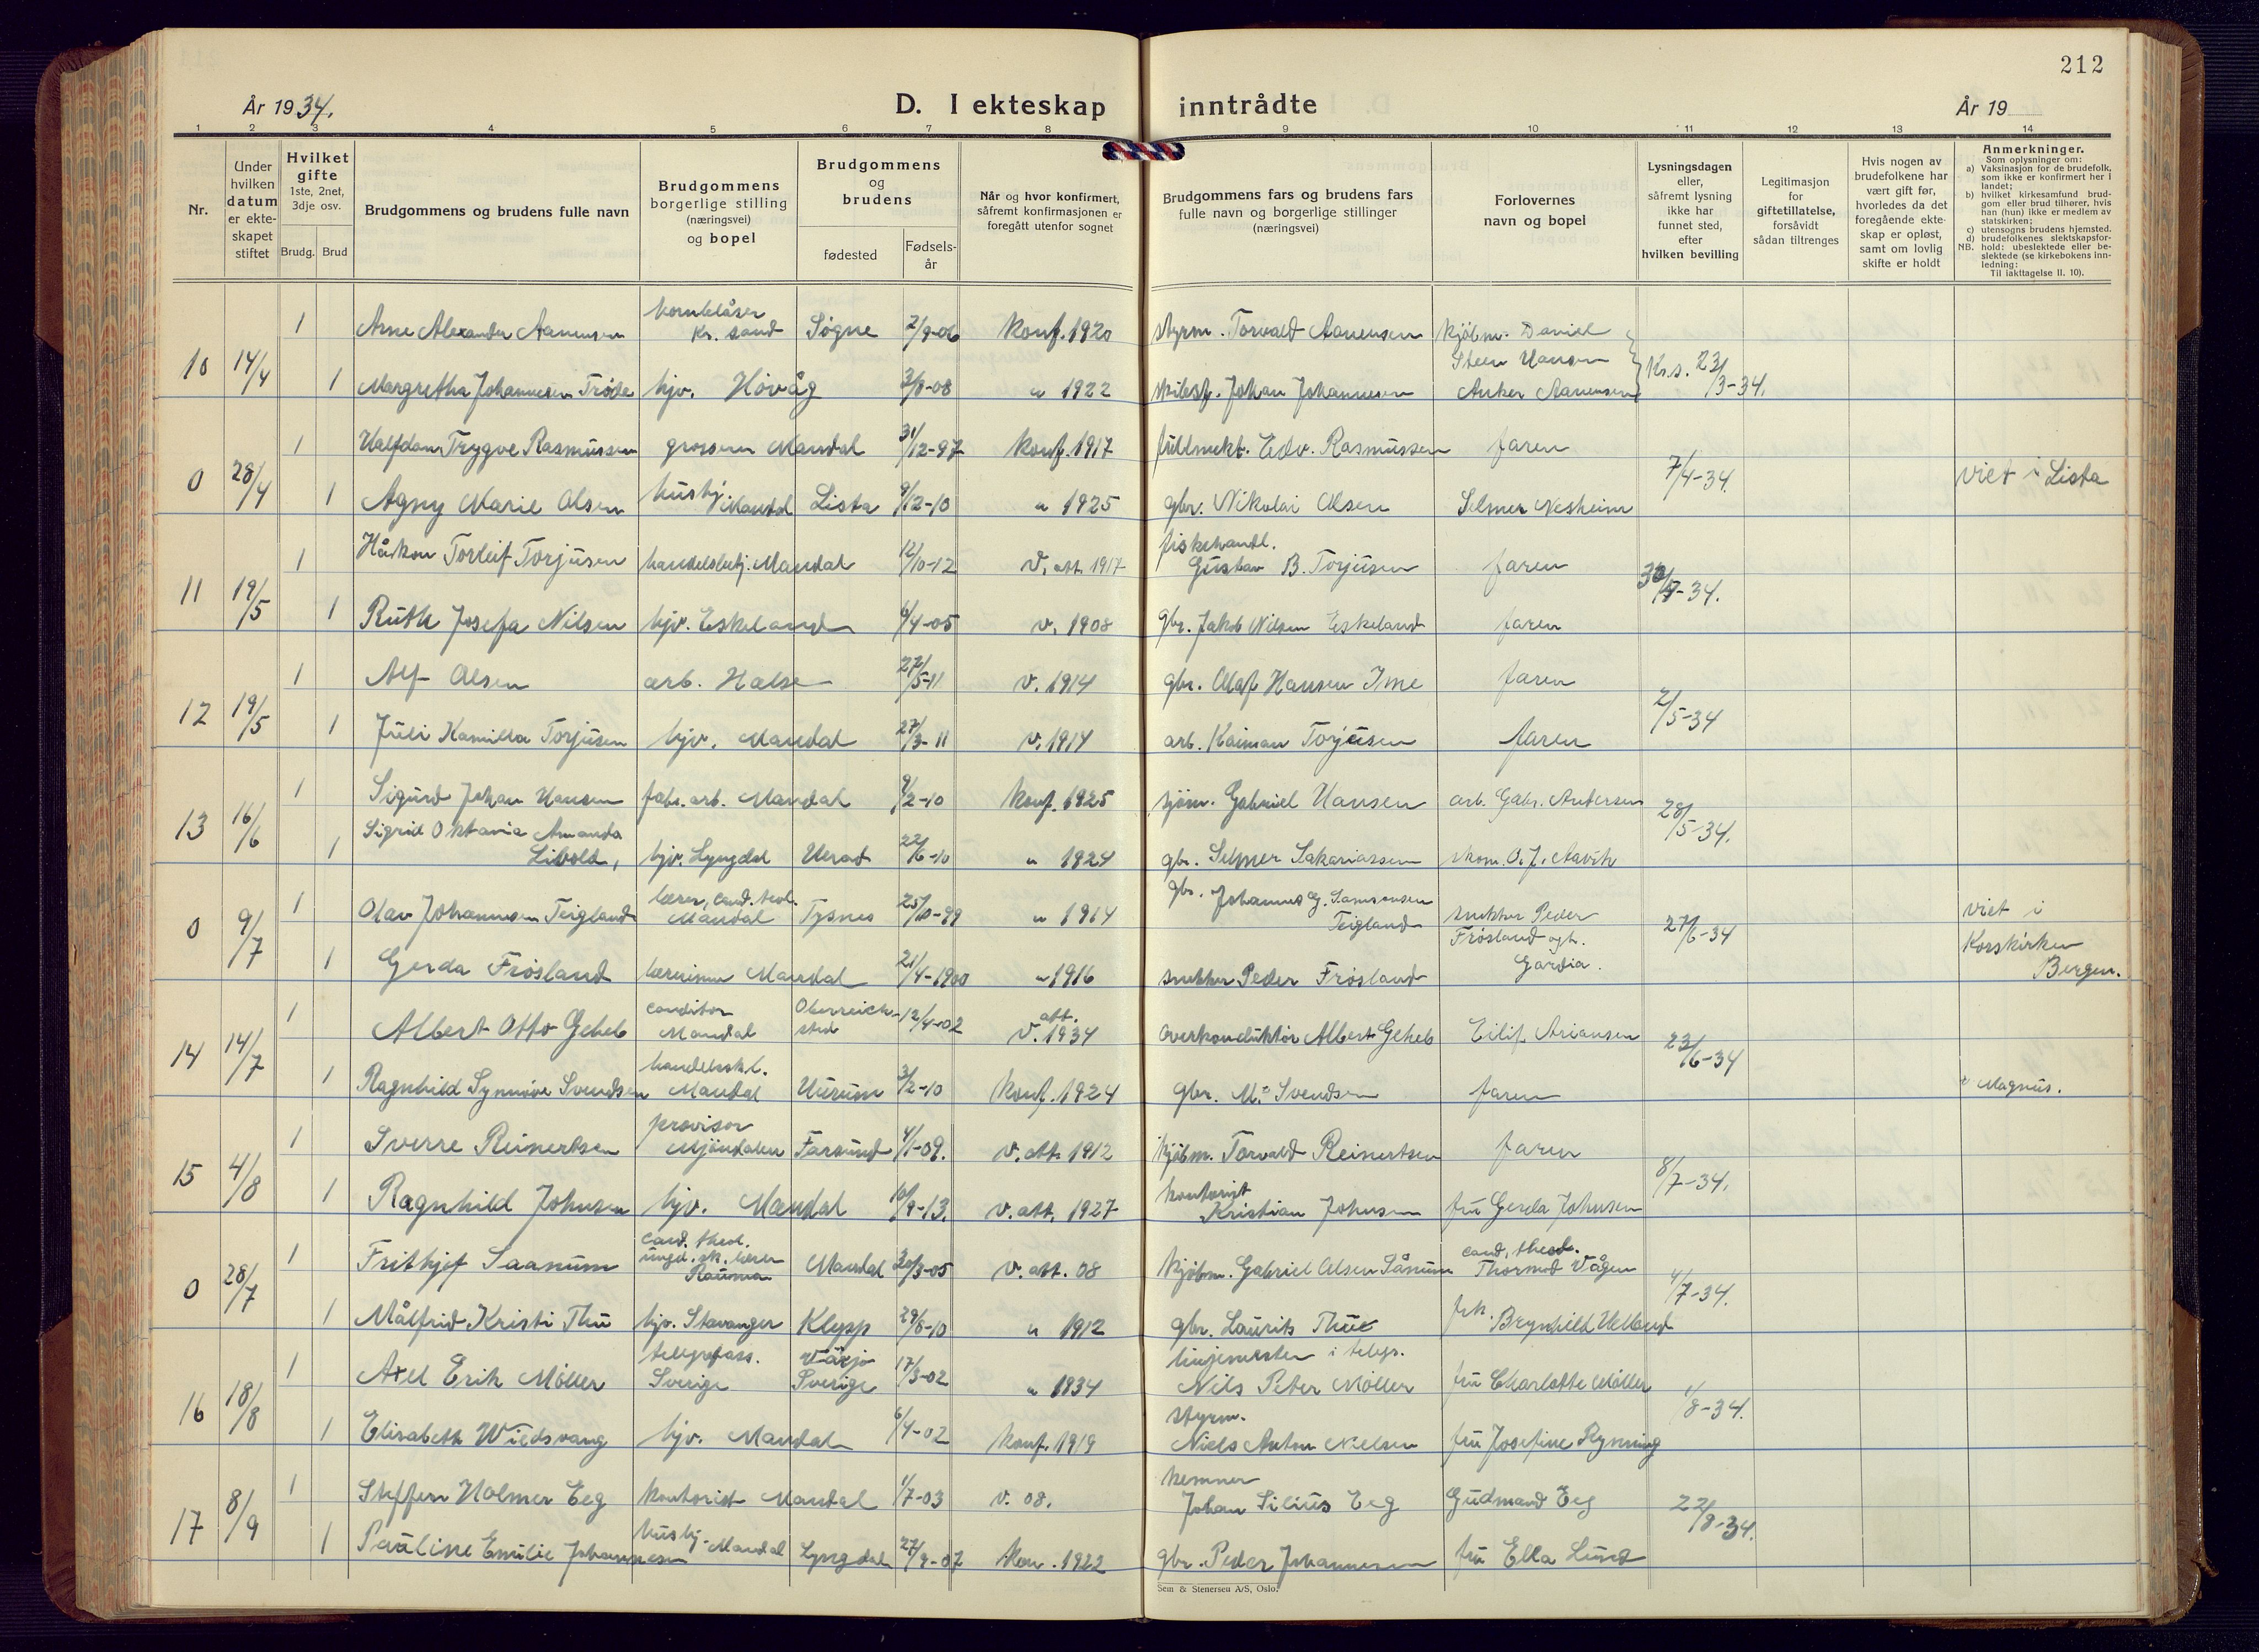 212
År 1934.
D. I ekteskap inntrådte
År 19
1 2 3 4 5 6 7 8 9 10 11 12 13 14
Nr.
Under hvilken datum er ekte- skapet stiftet
Hvilket gifte 1ste, 2net, 3dje osv.
Brudg. Brud
Brudgommens og brudens fulle navn
Brudgommens borgerlige stilling (næringsvei) og bopel
Brudgommens og brudens
fødested
Fødsels- år
Når og hvor konfirmert, såfremt konfirmasjonen er foregått utenfor sognet
Brudgommens fars og brudens fars fulle navn og borgerlige stillinger (næringsvei)
Forlovernes navn og bopel
Lysningsdagen eller, såfremt lysning ikke har funnet sted, efter hvilken bevilling
Legitimasjon for giftetillatelse, forsåvidt sådan tiltrenges
Hvis nogen av brudefolkene har vært gift før, hvorledes da det foregående ekte- skap er opløst, samt om lovlig skifte er holdt
Anmerkninger.
Som oplysninger om:
a) Vaksinasjon for de brudefolk, som ikke er konfirmert her i landet;
b) hvilket kirkesamfund brud- gom eller brud tilhører, hvis han (hun) ikke er medlem av statskirken;
c) utensogns brudens hjemsted.
d) brudefolkenes slektskapsfor- hold: ubeslektede eller be- slektede (se kirkebokens inn- ledning:
NB. Til iakttagelse II. 10).
1 Arne Alexander Aanensen hornblåser Kr. sand Søgne 2/9-06 Konf. 1920 styrm. Torvald Aanensen kjøbm. Daniel Steen Hansen
10 14/4 1 Margretha Johannesen Trøde hjv. Høvåg 3/8-08 " 1922 skibsf. Johan Johannesen Anker Aanensen Kr.s. 23/3-34.
1 Halfdan Trygve Rasmussen grosserer Mandal 31/12-97 Konf. 1917 fullmekt. Edv. Rasmussen faren
0 28/4 1 Agny Marie Olsen hushj. Mandal Lista 9/12-10 " 1925 gbr. Nikolai Olsen Selmer Nesheim 7/4-34. viet i Lista
1 Håkon Torleif Torjusen handelsbetj. Mandal 12/10-12 v. att. 1917 fiskehandl. Gustav B. Torjusen faren
11 19/5 1 Ruth Josefa Nilsen hjv. Eskeland 6/4-05 v. 1908 gbr. Jakob Nilsen Eskeland faren 30/4-34.
1 Alf Olsen arb. Halse 27/5-11 v. 1914 gbr. Olaf Hansen Ime faren
12 19/5 1 Juli Kamilla Torjusen hjv. Mandal 27/3-11 v. 1914 arb. Kaiman Torjusen faren 2/5-34
1 Sigurd Johan Hansen fabr. arb. Mandal 9/2-10 Konf. 1925 sjøm. Gabriel Hansen arb. Gabr. Andersen
13 16/6 1 Sigrid Oktavia Amanda Libold, hjv. Lyngdal 22/6-10 " 1924 gbr. Selmer Sakariassen skom. O. J. Aavik 28/5-34.
1 Olav Johannesen Teigland lærer, cand. teol. Mandal Tysnes 25/10-99 " 1914 gbr. Johannes G. Samsonsen Teigland snekker Peder Frøsland ogh.
0 9/7 1 Gerda Frøsland lærerinne Mandal 21/4-1900 " 1916 snekker Peder Frøsland Gardia. 27/6-34 viet i Korskirken Bergen.
1 Albert Otto Geheb conditor Mandal Oberreich- sted 12/4-02 att. v. 1934 overkonduktør Albert Geheb Eilif Ariansen
14 14/7 1 Ragnhild Synnøve Svendsen Mandal 3/2-10 Konf. 1924 gbr. M. Svendsen faren 23/6-34 Magnus.
1 Sverre Reinertsen provisor Mjøndalen Farsund 4/1-09. v. att. 1912 kjøbm. Torvald Reinertsen faren
15 4/8 1 Ragnhild Johnsen hjv. Mandal 10/9-13. v. att. 1927 kontorist Kristian Johnsen fru Gerda Johnsen 8/7-34.
1 Frithjof Saanum cand. theol. ungd. sk. lærer Rauma Mandal 20/3-05 v. att. 08 kjøbm. Gabriel Olsen Sånum cand. theol. Thormod Vågen
0 28/7 1 Målfrid Kristi Thu hjv. Stavanger Klepp 29/8-10 " 1912 gbr. Laurits Thue frk. Brynhild Helland 4/7-34.
1 Axel Erik Möller telegrafass. Sverige Växjö Sverige 17/3-02 " 1934 linjemester i telegr. Nils Peter Möller fru Charlotte Möller
16 18/8 1 Elisabeth Wiedswang hjv. Mandal 6/4-02 konf. 1919 styrm. Niels Anton Nielsen fru Josefine Rynning 1/8-34.
1 Steffen Holmer Eeg kontorist Mandal 1/7-03 v. 08. kemner Johan Silius Eeg Gudmand Eeg
17 8/9 1 Pauline Emilie Johannesen hushj. Mandal Lyngdal 27/9-07 kon. 1922 gbr. Peder Johannesen fru Ella Lund 22/8-34.
Sem & Stenersen A/S, Oslo.